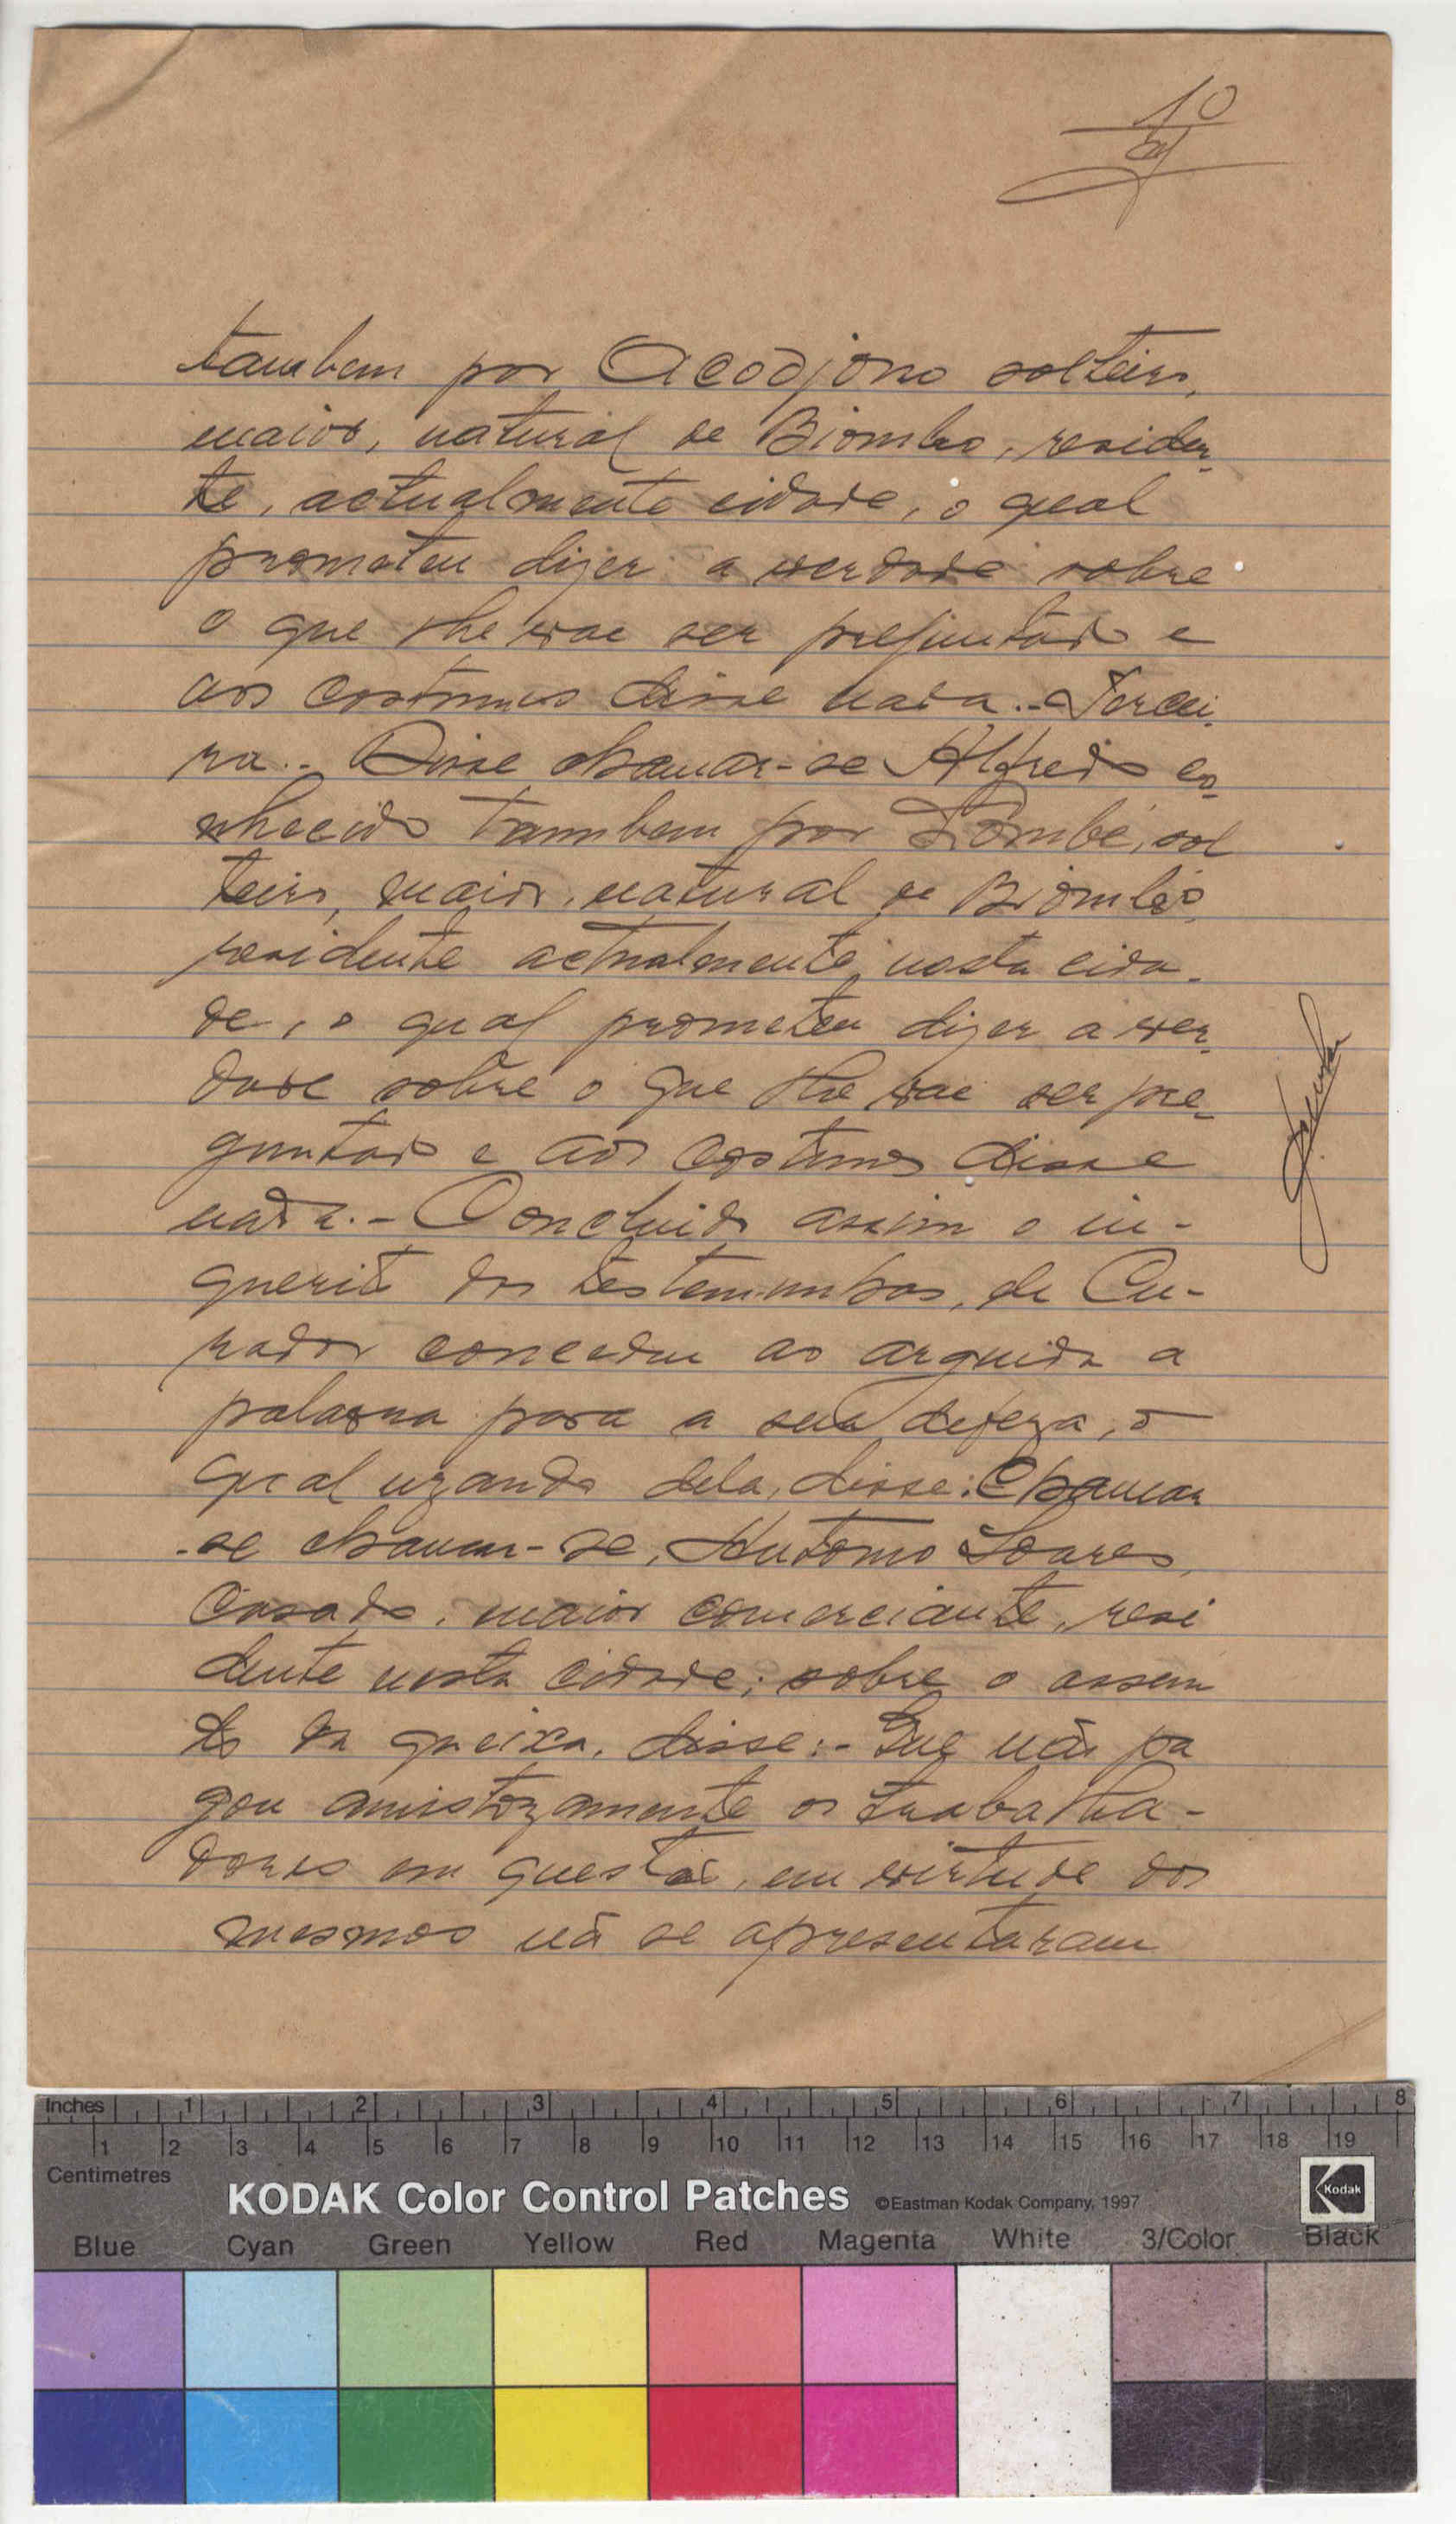 10
tambem por Acodjono solteiro,
maior, natural de Biombo, residen-
te, actualmente cidade, o qual
prometeu dizer a verdade sobre
o que lhe vae ser preguntado e
aos costumes disse nada.- Tercei-
ra.- Disse chamar-se Alfredo co-
nhecido tambem por Tombé, sol
teiro, maior, natural de Biombo,
residente actualmente nesta cida-
de, o qual prometeu dizer a ver-
dade sobre o que lhe vae ser pre-
guntado e aos costumes disse
nada.- Concluido assim o in-
querito das testemunhas, de Cu-
rador concedeu ao arguido a
palavra para a sua defeza, o
qual uzando dela, disse: Chamar
-se chamar-se, Antonio Soares,
Casado, maior comerciante, resi
dente nesta cidade; sobre o assun
to da queixa, disse:- Que não pa
gou amistozamente os trabalha-
dores em questão, em virtude dos
mesmos não se apresentaram
Inches 1 2 3 4 5 6 7 8
1 2 3 4 5 6 7 8 9 10 11 12 13 14 15 16 17 18 19
Centimetres
KODAK Color Control Patches ©Eastman Kodak Company, 1997
Kodak
Blue Cyan Green Yellow Red Magenta White 3/Color Black